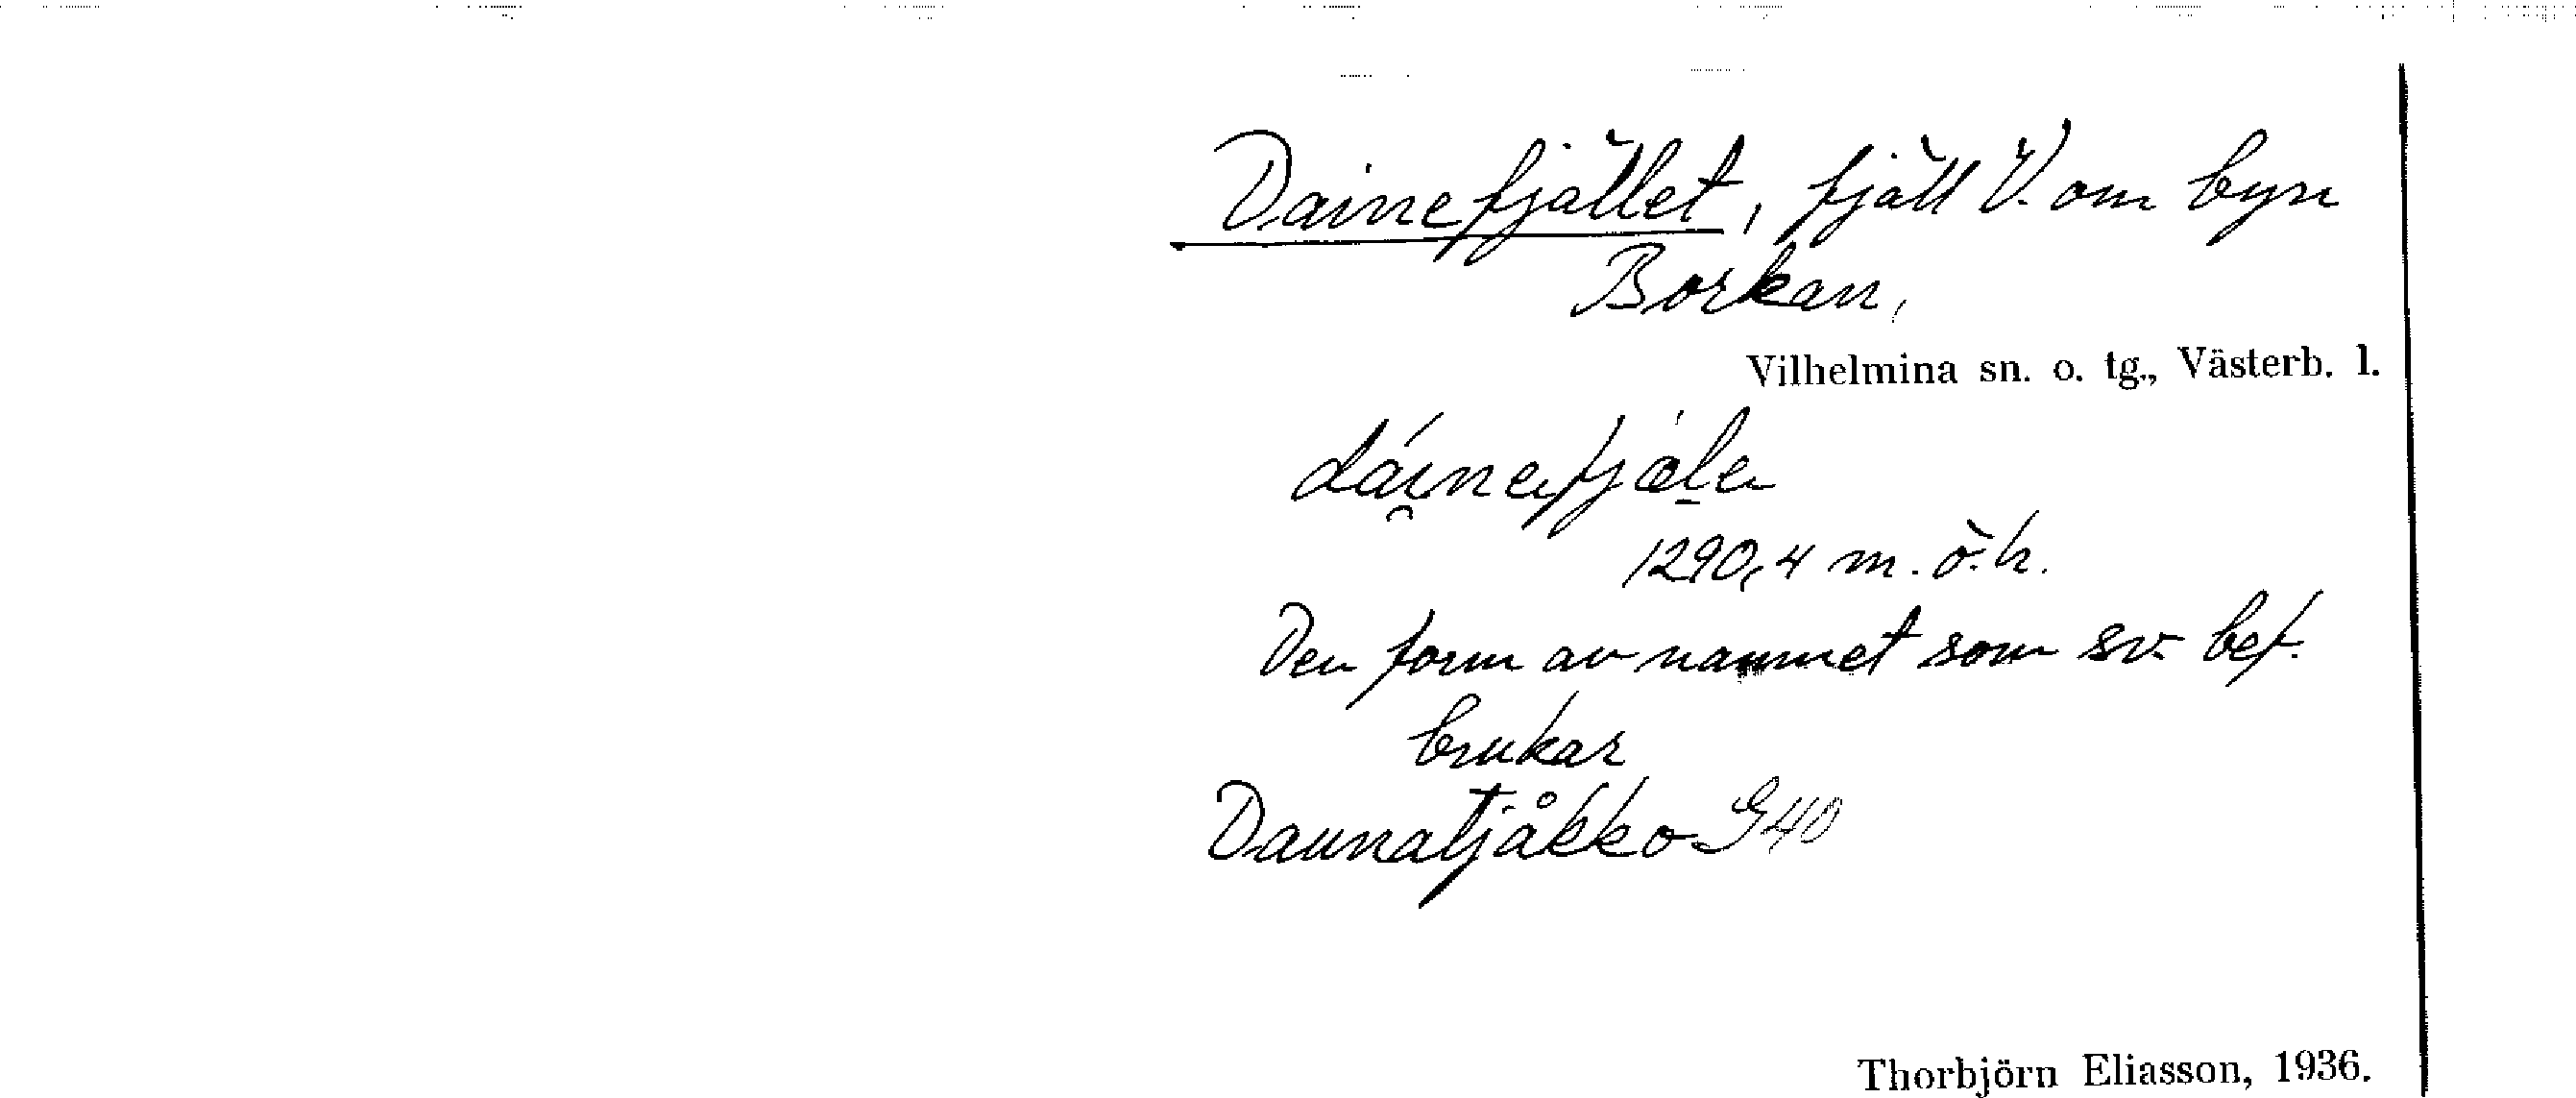 Dainefjället, fjäll V. om byn
Borkan,
Vilhelmina sn. o. tg., Västerb. l.
dái̯nefjæle
1290,4 m. ö. h.
Den form av namnet som sv. bef.
brukar
Daunatjåkko G40
Thorbjörn Eliasson, 1936.